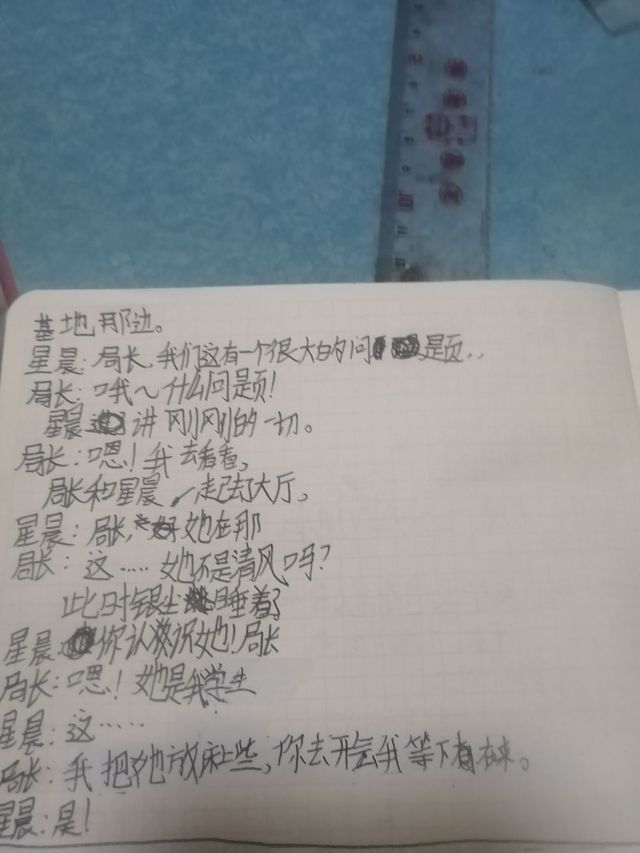 基地那边。
星晨：局长,我们这有一个很大的问题..
局长：哦～什么问题！
星晨讲刚刚的一切。
局长：嗯！我去看看,
局长和星晨走去大厅,
星晨：局长,她在那
局长：这……她不是清风吗？
此时银尘睡着了
星晨：你认识她！局长
局长：嗯！她是我学生
星晨：这……
局长：我把她放床上些,你去开会我等下有来。
星晨：是！
10
11